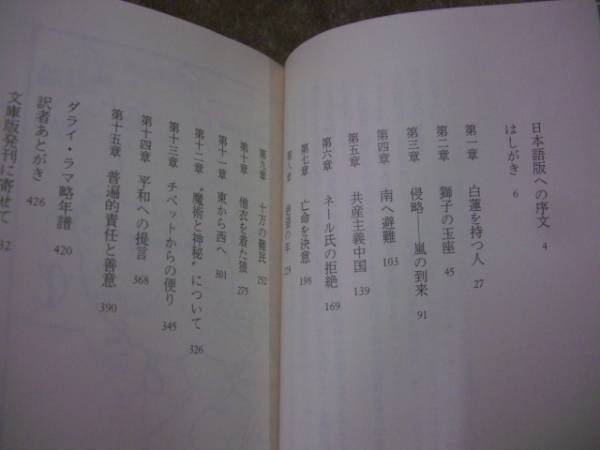 日本語版への序文 4
はしがき 6
第一章 白蓮を持つ人 27
第二章 獅子の玉座 45
第三章 侵略――嵐の到来 91
第四章 南へ避難 103
第五章 共産主義中国 139
第六章 ネール氏の拒絶 169
第七章 亡命を決意 198
第八章 の年
第九章 十万の難民 252
第十章 僧衣を着た狼 275
第十一章 東から西へ 301
第十二章 “魔術と神秘”について 326
第十三章 チベットからの便り 345
第十四章 平和への提言 368
第十五章 普遍的責任と善意 390
ダライ・ラマ略年譜 420
訳者あとがき 426
文庫版発刊に寄せて